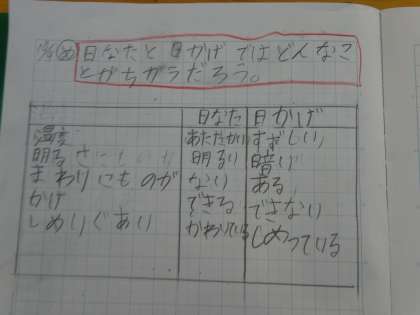 め 日なたと日かげではどんなこ
とがちがうだろう。
日なた 日かげ
温度 あたたかい すずしい
明るさ 明るい 暗い
まわりにものが ない ある
かげ できる できない
しめりぐあい かわいている しめっている